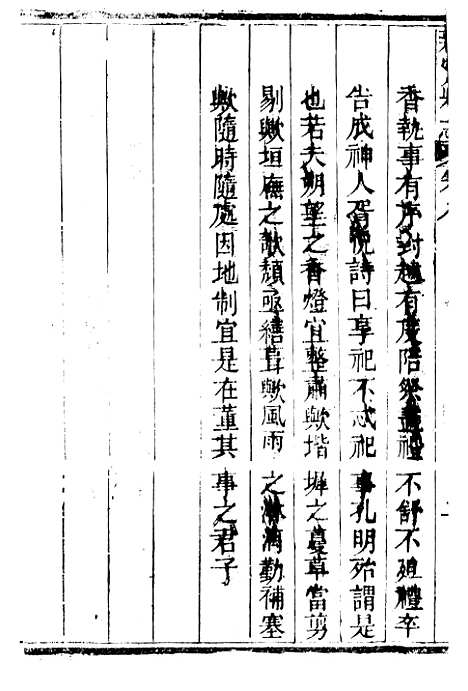 香執事有序對越有度陪祭盡禮不舒不遽禮卒
告成神人胥悅詩曰享祀不忒祀事孔明殆謂是
也若夫朔望之香燈宜整肅歟堦墀之蔓草當剪
剔歟垣廡之欹頹亟繕葺歟風雨之淋漓勤補塞
歟隨時隨處因地制宜是在董其事之君子